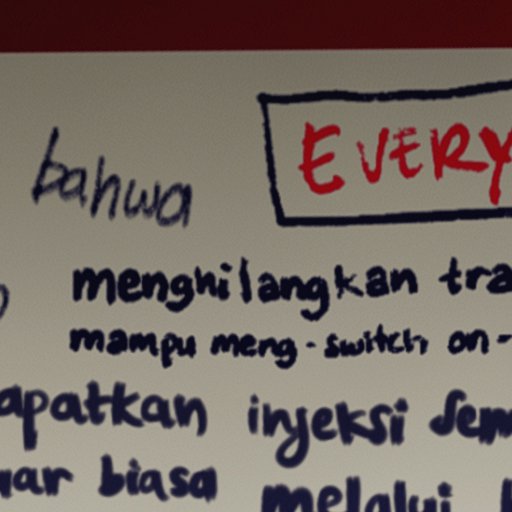 bahwa EVERY
menghilangkan tra
mampu meng-switch on-
apatkan injeksi sem
uar biasa melalui